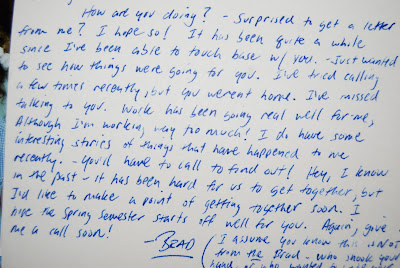 How are you doing? - Surprised to get a letter
from me? I hope so! It has been quite a while
since I've been able to touch base w/ you. - Just wanted
to see how things were going for you. I've tried calling
a few times recently, but you weren't home. I've missed
talking to you. Work has been going real well for me,
Although I'm working way too much! I do have some
interesting stories of things that have happened to me
recently. - You'll have to call to find out! Hey, I know
in the past - it has been hard for us to get together, but
I'd like to make a point of getting together soon. I
hope the Spring semester starts off well for you. Again, give
me a call soon!
- BRAD
( I assume you know this is not
from the Brad - who shook your
hand, or who wanted